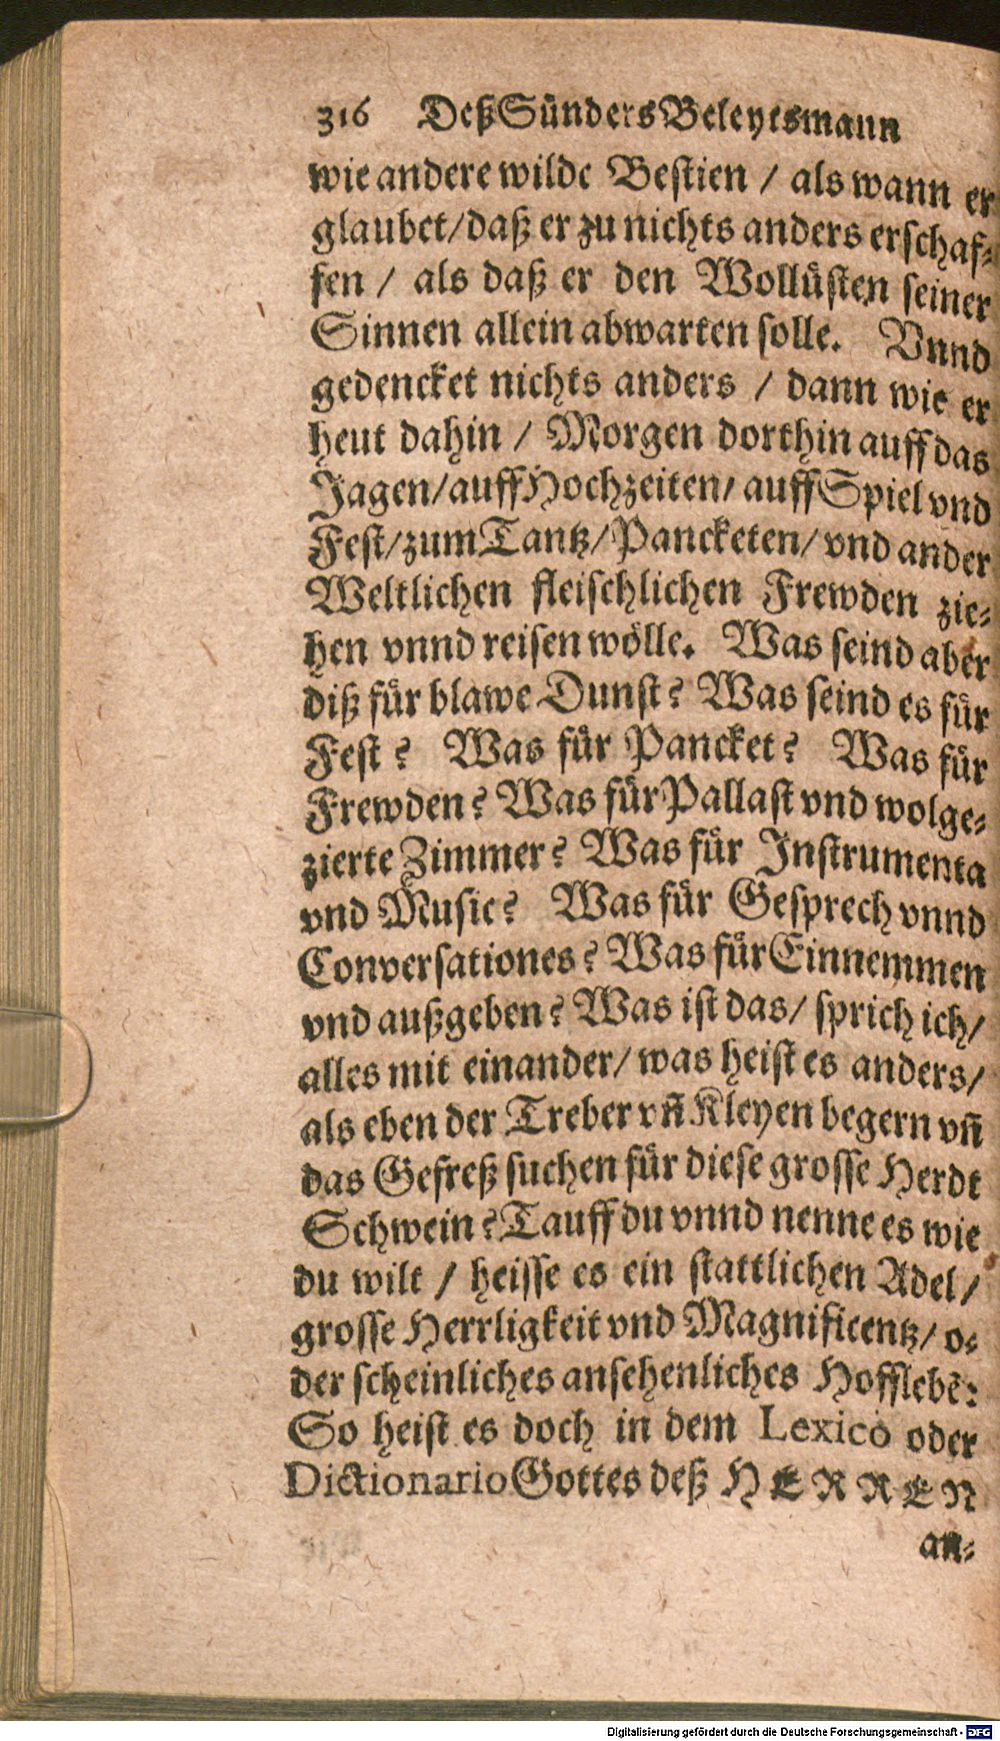 316 Deß Sünders Beleytsmann
wie andere wilde Bestien / als wann er
glaubet/daß er zu nichts anders erschaf-
fen / als daß er den Wollüsten seiner
Sinnen allein abwarten solle. Vnnd
gedencket nichts anders / dann wie er
heut dahin / Morgen dorthin auff das
Jagen/auff Hochzeiten/ auff Spiel vnd
Fest/zum Tantz/Pancketen/vnd ander
Weltlichen fleischlichen Frewden zie-
hen vnnd reisen wölle. Was seind aber
diß für blawe Dunst? Was seind es für
Fest? Was für Pancket? Was für
Frewden? Was für Pallast vnd wolge-
zierte Zimmer? Was für Instrumenta
vnd Music? Was für Gesprech vnnd
Conversationes? Was für Einnemmen
vnd außgeben? Was ist das/ sprich ich/
alles mit einander/ was heist es anders/
als eben der Treber vñ Kleyen begern vñ
das Gefreß suchen für diese grosse Herdt
Schwein? Tauff du vnnd nenne es wie
du wilt / heisse es ein stattlichen Adel/
grosse Herrligkeit vnd Magnificentz/ o-
der scheinliches ansehenliches Hofflebẽ:
So heist es doch in dem Lexico oder
Dictionario Gottes deß HERREN
an-
Digitalisierung gefördert durch die Deutsche Forschungsgemeinschaft - DFG